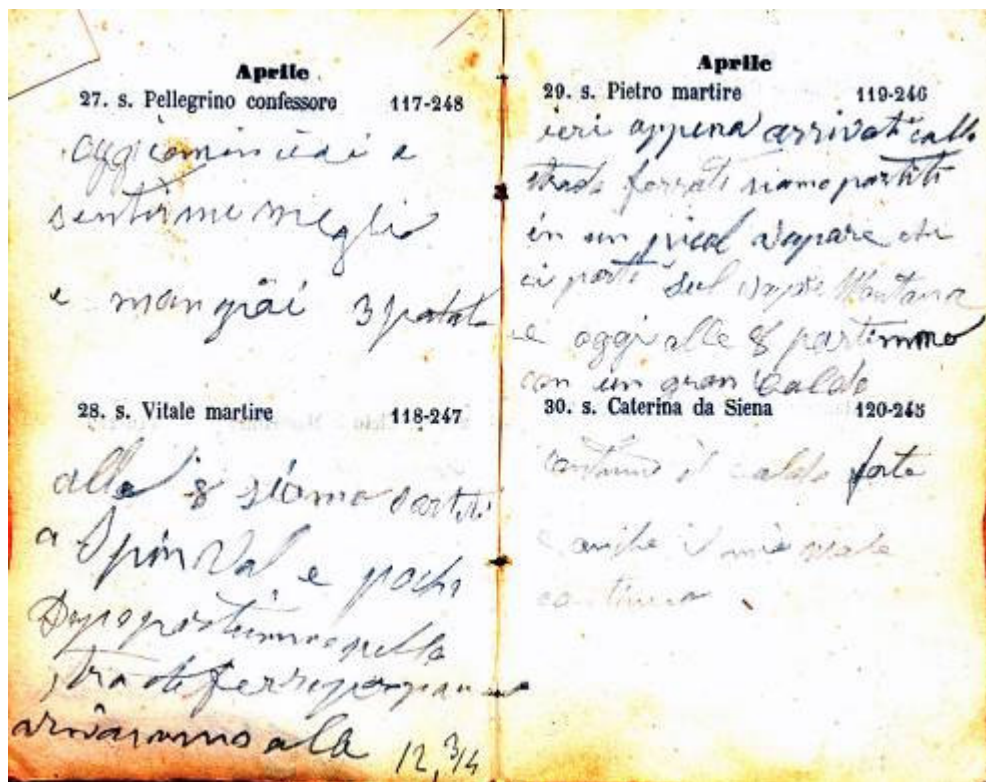 Aprile
27. s. Pellegrino confessore 117-248
oggi cominciai a
sentirmi meglio
e mangiai 3 patate
28. s. Vitale martire 118-247
alle 8 siamo partiti
a e pochi
Dopo partimmo nella
strada
arrivammo alle 12, 3/4
Aprile
29. s. Pietro martire 119-246
ieri appena arrivati colla
strada ferrata siamo partiti
in un picol vapore che
ci portò sul vapore Montana
e oggi alle 8 partimmo
con un gran caldo
30. s. Caterina da Siena 120-245
continuo il caldo forte
e anche il mio male
continua